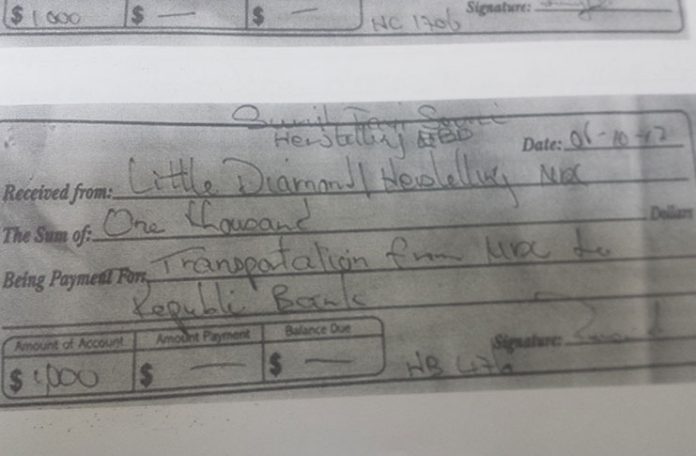 $ 1000 $ — $ —
HC 1706 Signature:
Sumit Taxi
Herstelling EBD
Date: 06-10-17
Received from: Little Diamond/Herstelling NDC
The Sum of: One thousand Dollars
Being Payment For: Transpotation from NDC to
Republic Bank
Amount of Account Amount Payment Balance Due
Signature:
$ 1,000 $ — $ —